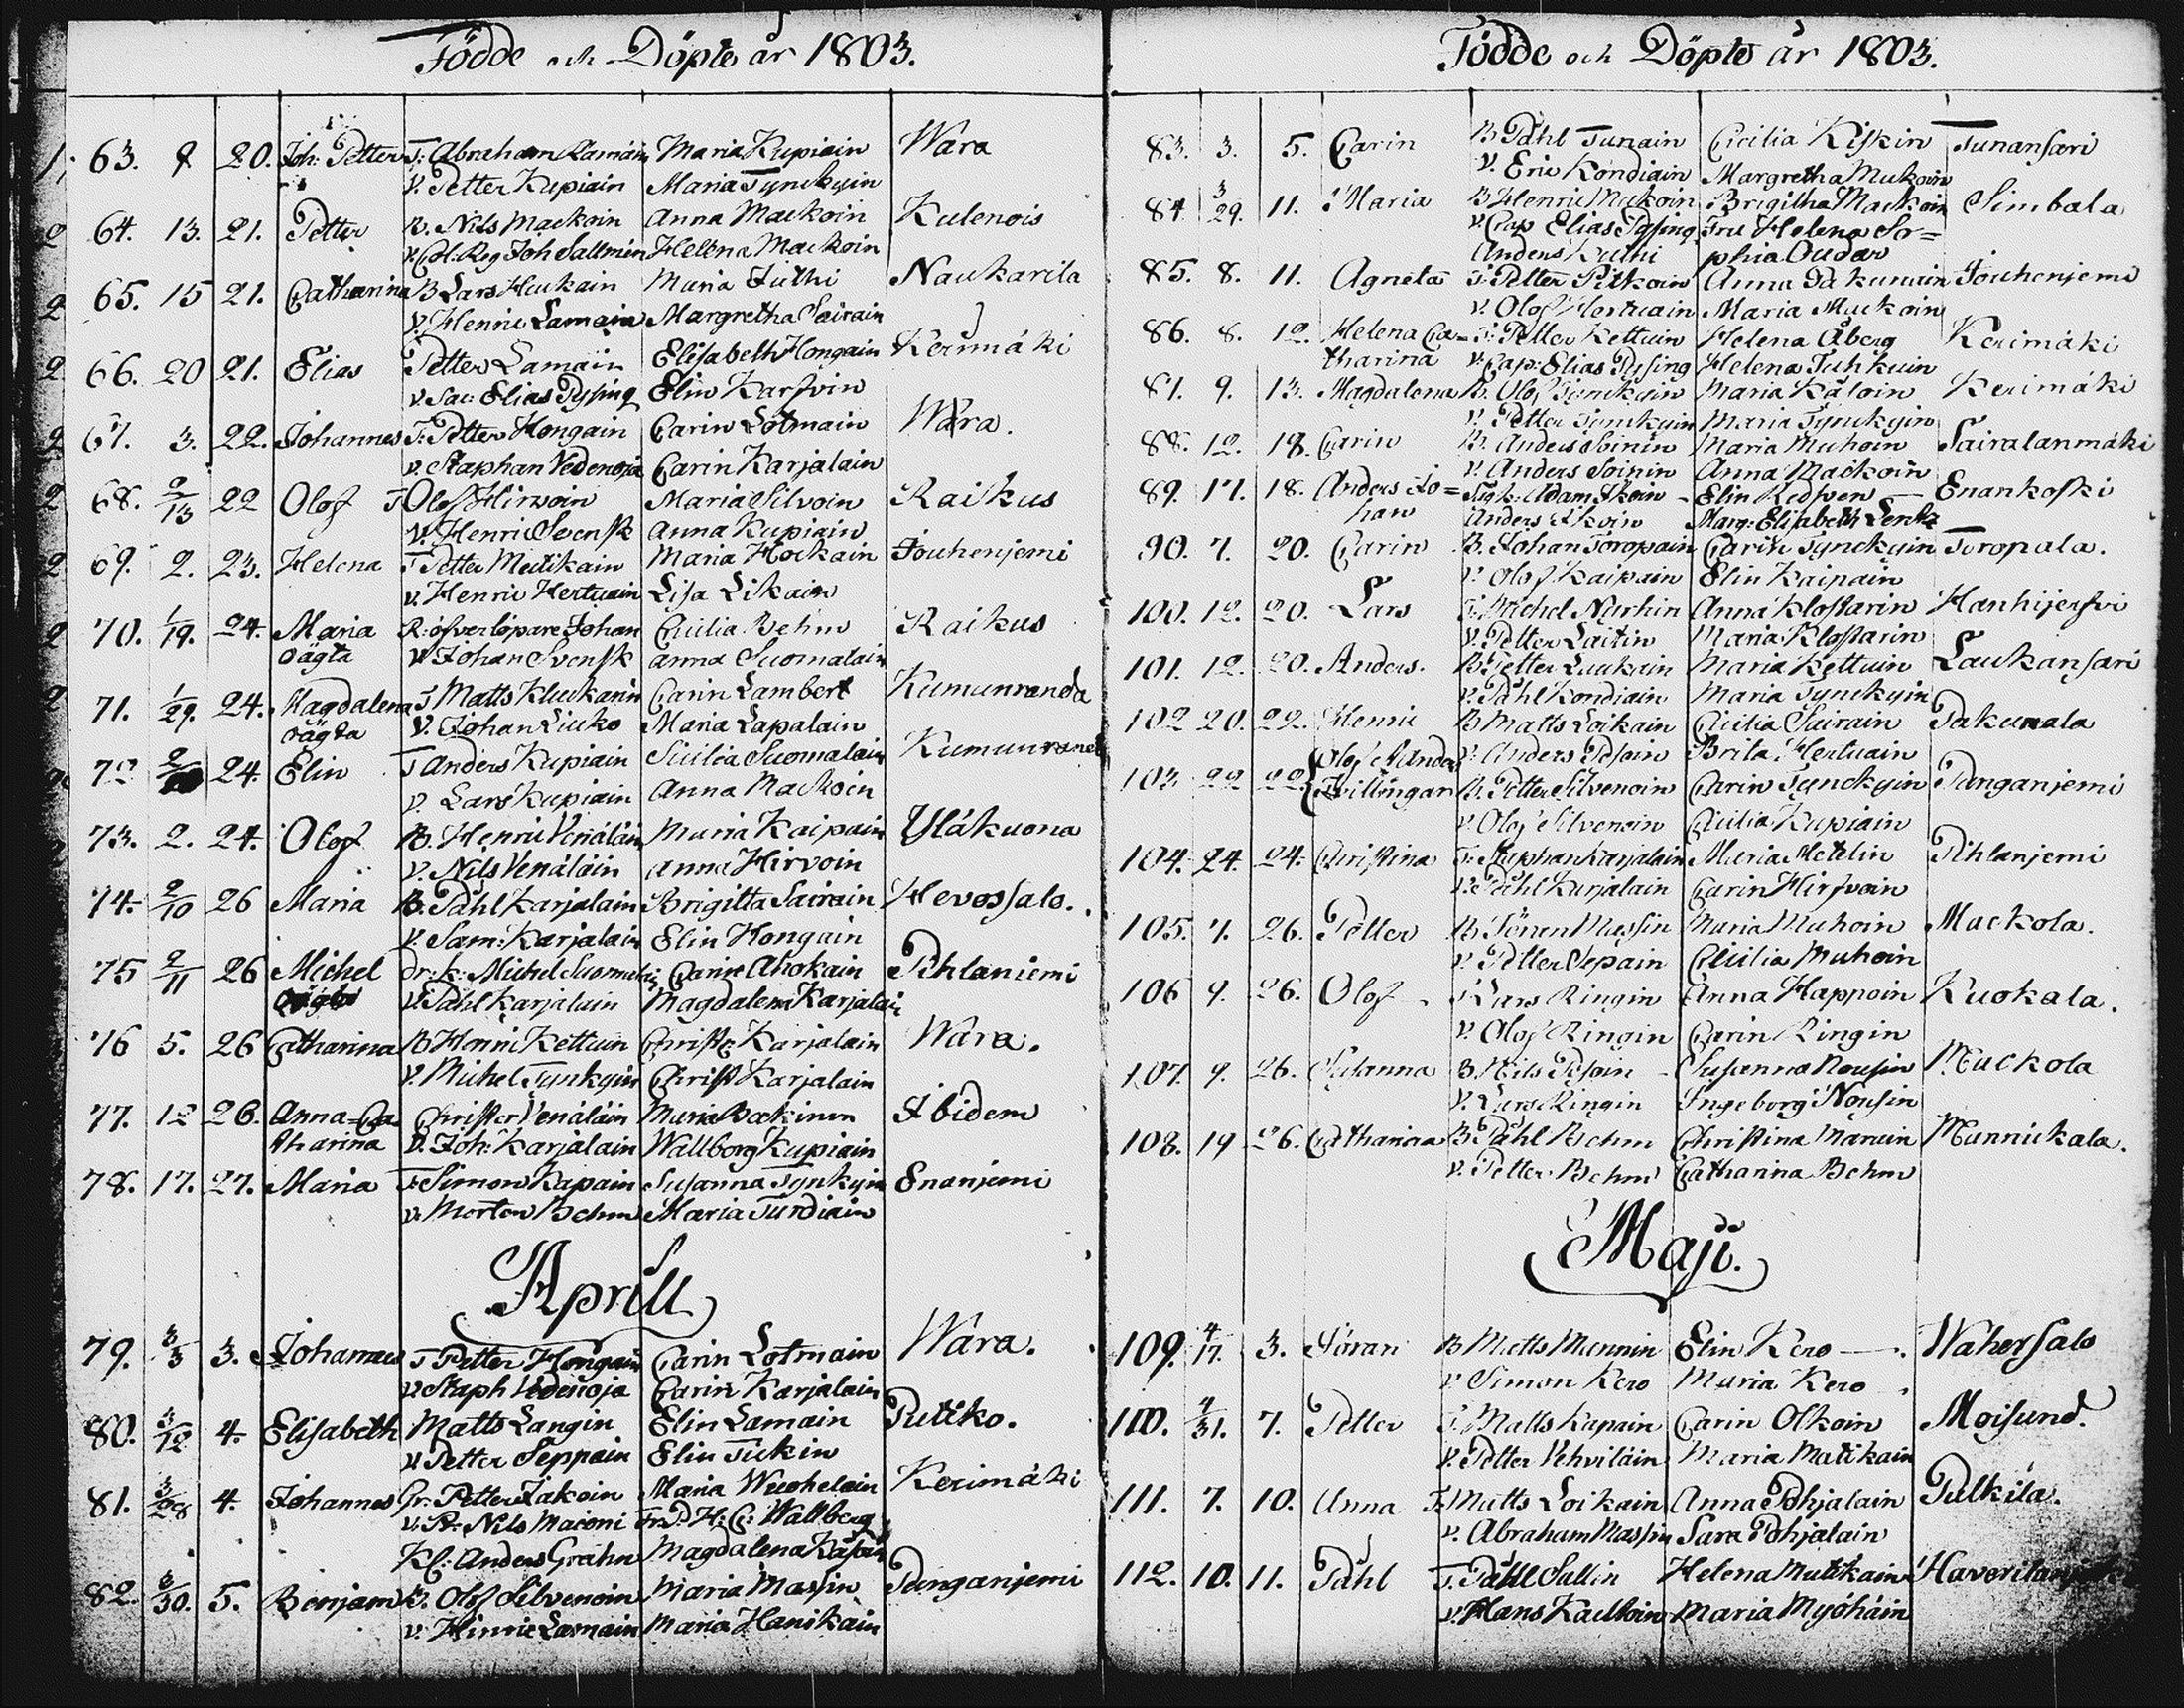 Födde och Döpte år 1803.
63. 9 20. Joh: Petter T: Abraham Ramain Maria Kupiain Wara
v. Petter Kupiain Maria Tynckyin
64. 13. 21. Petter B. Nils Mackoin Anna Mackoin Kulenois
v. Col: Reg Joh Sallmén Helena Mackoin
65. 15 21. Catharina B Lars Heukain Maria Juthi Naukarila
v. Henric Lamain Margretha Sairain
66. 20 21. Elias Petter Lamain Elisabeth Hongain Kerimäki
v. Sac: Elias Pysing Elin Karfvin
67. 3. 22. Johannes T: Petter Hongain Carin Lotmain Wara.
v. Staphan Vedenoja Carin Karjalain
68. 2/13 22 Olof T Olof Hirvoin Maria Silvoin Raikus
v. Henric Svensk Anna Kupiain
69. 2. 23. Helena T Petter Meitikain Maria Hockain Jouhenjemi
v. Henric Hertuain Lisa Likain
70. 1/19. 24. Maria R: öfverlöpare Johan Cicilia Behm Raikus
oägta v Johan Svensk Anna Suomalain
71. 1/29. 24. Magdalena T Matts Kluckanin Carin Lambert Kumunranda
oägta v. Johan Liuko Maria Lapalain
72 2/ 24. Elin T Anders Kupiain Sicilia Suomalain
v. Lars Kupiain Anna Mackoin
73. 2. 24. Olof B. Henric Venäläin Maria Kaipain Yläkuona
v. Nils Venäläin Anna Hirvoin
74. 2/10 26 Maria B. Påhl Karjalain Brigitta Sairain Hevossalo.
v. Sam: Karjalain Elin Hongain
75 2/11 26 Michel Dr: k: Michel Suomalain Carin Ahokain Pihlaniemi
v. Påhl Karjalain Magdalena Karjalain
76 5. 26 Catharina B Henric Kettuin Christi: Karjalain Wara.
v. Michel Tynkyin Christ Karjalain
77. 12 26. Anna-Ca- Christer Venäläin Maria Backinen Ibidem
tharina v. Joh: Karjalain Wallborg Kupiain
78. 17. 27. Maria T. Simon Kapain Susanna Tynkyin Enanjemi
v. Morten Behm Maria Turdiain
Aprill
79. 3/3 3. Johannes T Petter Hongain Carin Lotmain Wara.
v Staph Vedenoja Carin Karjalain
80. 3/12 4. Elisabeth Matts Langin Elin Lamain Putiko.
v Petter Seppain Elin Tickin
81. 3/28 4. Johannes Gr. Petter Jakoin Maria Wuohelain Kerimäki
v. Pr: Nils Maconi Fr. P. H: C: Wallberg
Kl: Anders Grahn Magdalena Kasoin
82. 3/30. 5. Benjam B. Olof Silvenoin Maria Massin Panganjemi
v. Hinric Lamain Maria Hanikain
Födde och Döpte år 1803.
83. 3. 5. Carin B Påhl Tunain Cicilia Kiskin Tunansari
v. Eric Kondiain Margretha Mukoin
84. 3/29. 11. Maria B Henric Muckoin Brigitha Mackoin Simbala
v. Cap Elias Pysing Fru Helena So=
Anders Kuthi phia Oudar
85. 8. 11. Agneta T. Petter Pitkoin Anna Pakunain Jouhenjemi
v. Olof Hertuain Maria Muckoin
86. 8. 12. Helena Ca= T: Petter Kettuin Helena Åberg Kerimäki
tharina v. Cap: Elias Pysing Helena Tuhkuin
87. 9. 13. Magdalena B. Olof Tynckyin Maria Käloin Kerimäki
v. Petter Tynckyin Maria Tynckyin
88. 12. 18. Carin B. Anders Soinin Maria Muhoin Sairalanmäki
v. Anders Soinin Anna Mackoin
89. 17. 18. Anders Jo= Adam Ikoin Elin Redfven Enankoski
han Anders Ikoin Marg: Elisabeth Lentz
90. 7. 20. Carin B. Johan Toropain Carin Tynckyin Toropala.
v. Olof Kaipain Elin Kaipain
100. 12. 20. Lars T. Michel Nurhin Anna Klostarin Hanhijerfvi
v. Petter Laitin Maria Klostarin
101. 12. 20. Anders. B. Petter Laukain Maria Kettuin Laukansari
v. Påhl Kondiain Maria Tynckyin
102 20. 22. Henric B Matts Loikain Cicilia Sairain Pakunala
v. Anders Pesoin Brita Hertuain
Olof &
103. 22 22. Tvillingar B. Petter Silvenoin Carin Tynckyin Panganjemi
v. Olof Silvenoin Cicilia Kupiain
104. 24. 24. Christina T. Staphan Karjalain Maria Metelin Pihlanjemi
v. Påhl Karjalain Carin Hirfvoin
105. 7. 26. Petter B Sören Massin Maria Muhoin Mackola.
v. Petter Sepain Cicilia Muhoin
106 9. 26. Olof Lars Ringin Anna Happoin Kuokala.
v. Olof Ringin Carin Ringin
107. 9. 26. Susanna B Nils Pesoin Susanna Nousin Mackola
v. Lars Ringin Ingeborg Nousin
108. 19 26. Catharina B Påhl Behm Christina Manuin Munnickala.
v. Petter Behm Catharina Behm
Maji.
109. 4/17. 3. Söran B Matts Munnin Elin Kero Wahersalo
v Simon Kero Maria Kero
110. 4/31. 7. Petter T. Matts Kapain Carin Olkoin Moisund.
v. Petter Vehviläin Maria Matikain
111. 7. 10. Anna T. Matts Loikain Anna Pohjalain Pulkila.
v. Abraham Massin Sara Pohjalain
112. 10. 11. Påhl T. Påhl Sallin Helena Matikain
v. Hans Kaeltoin Maria Myöhäin